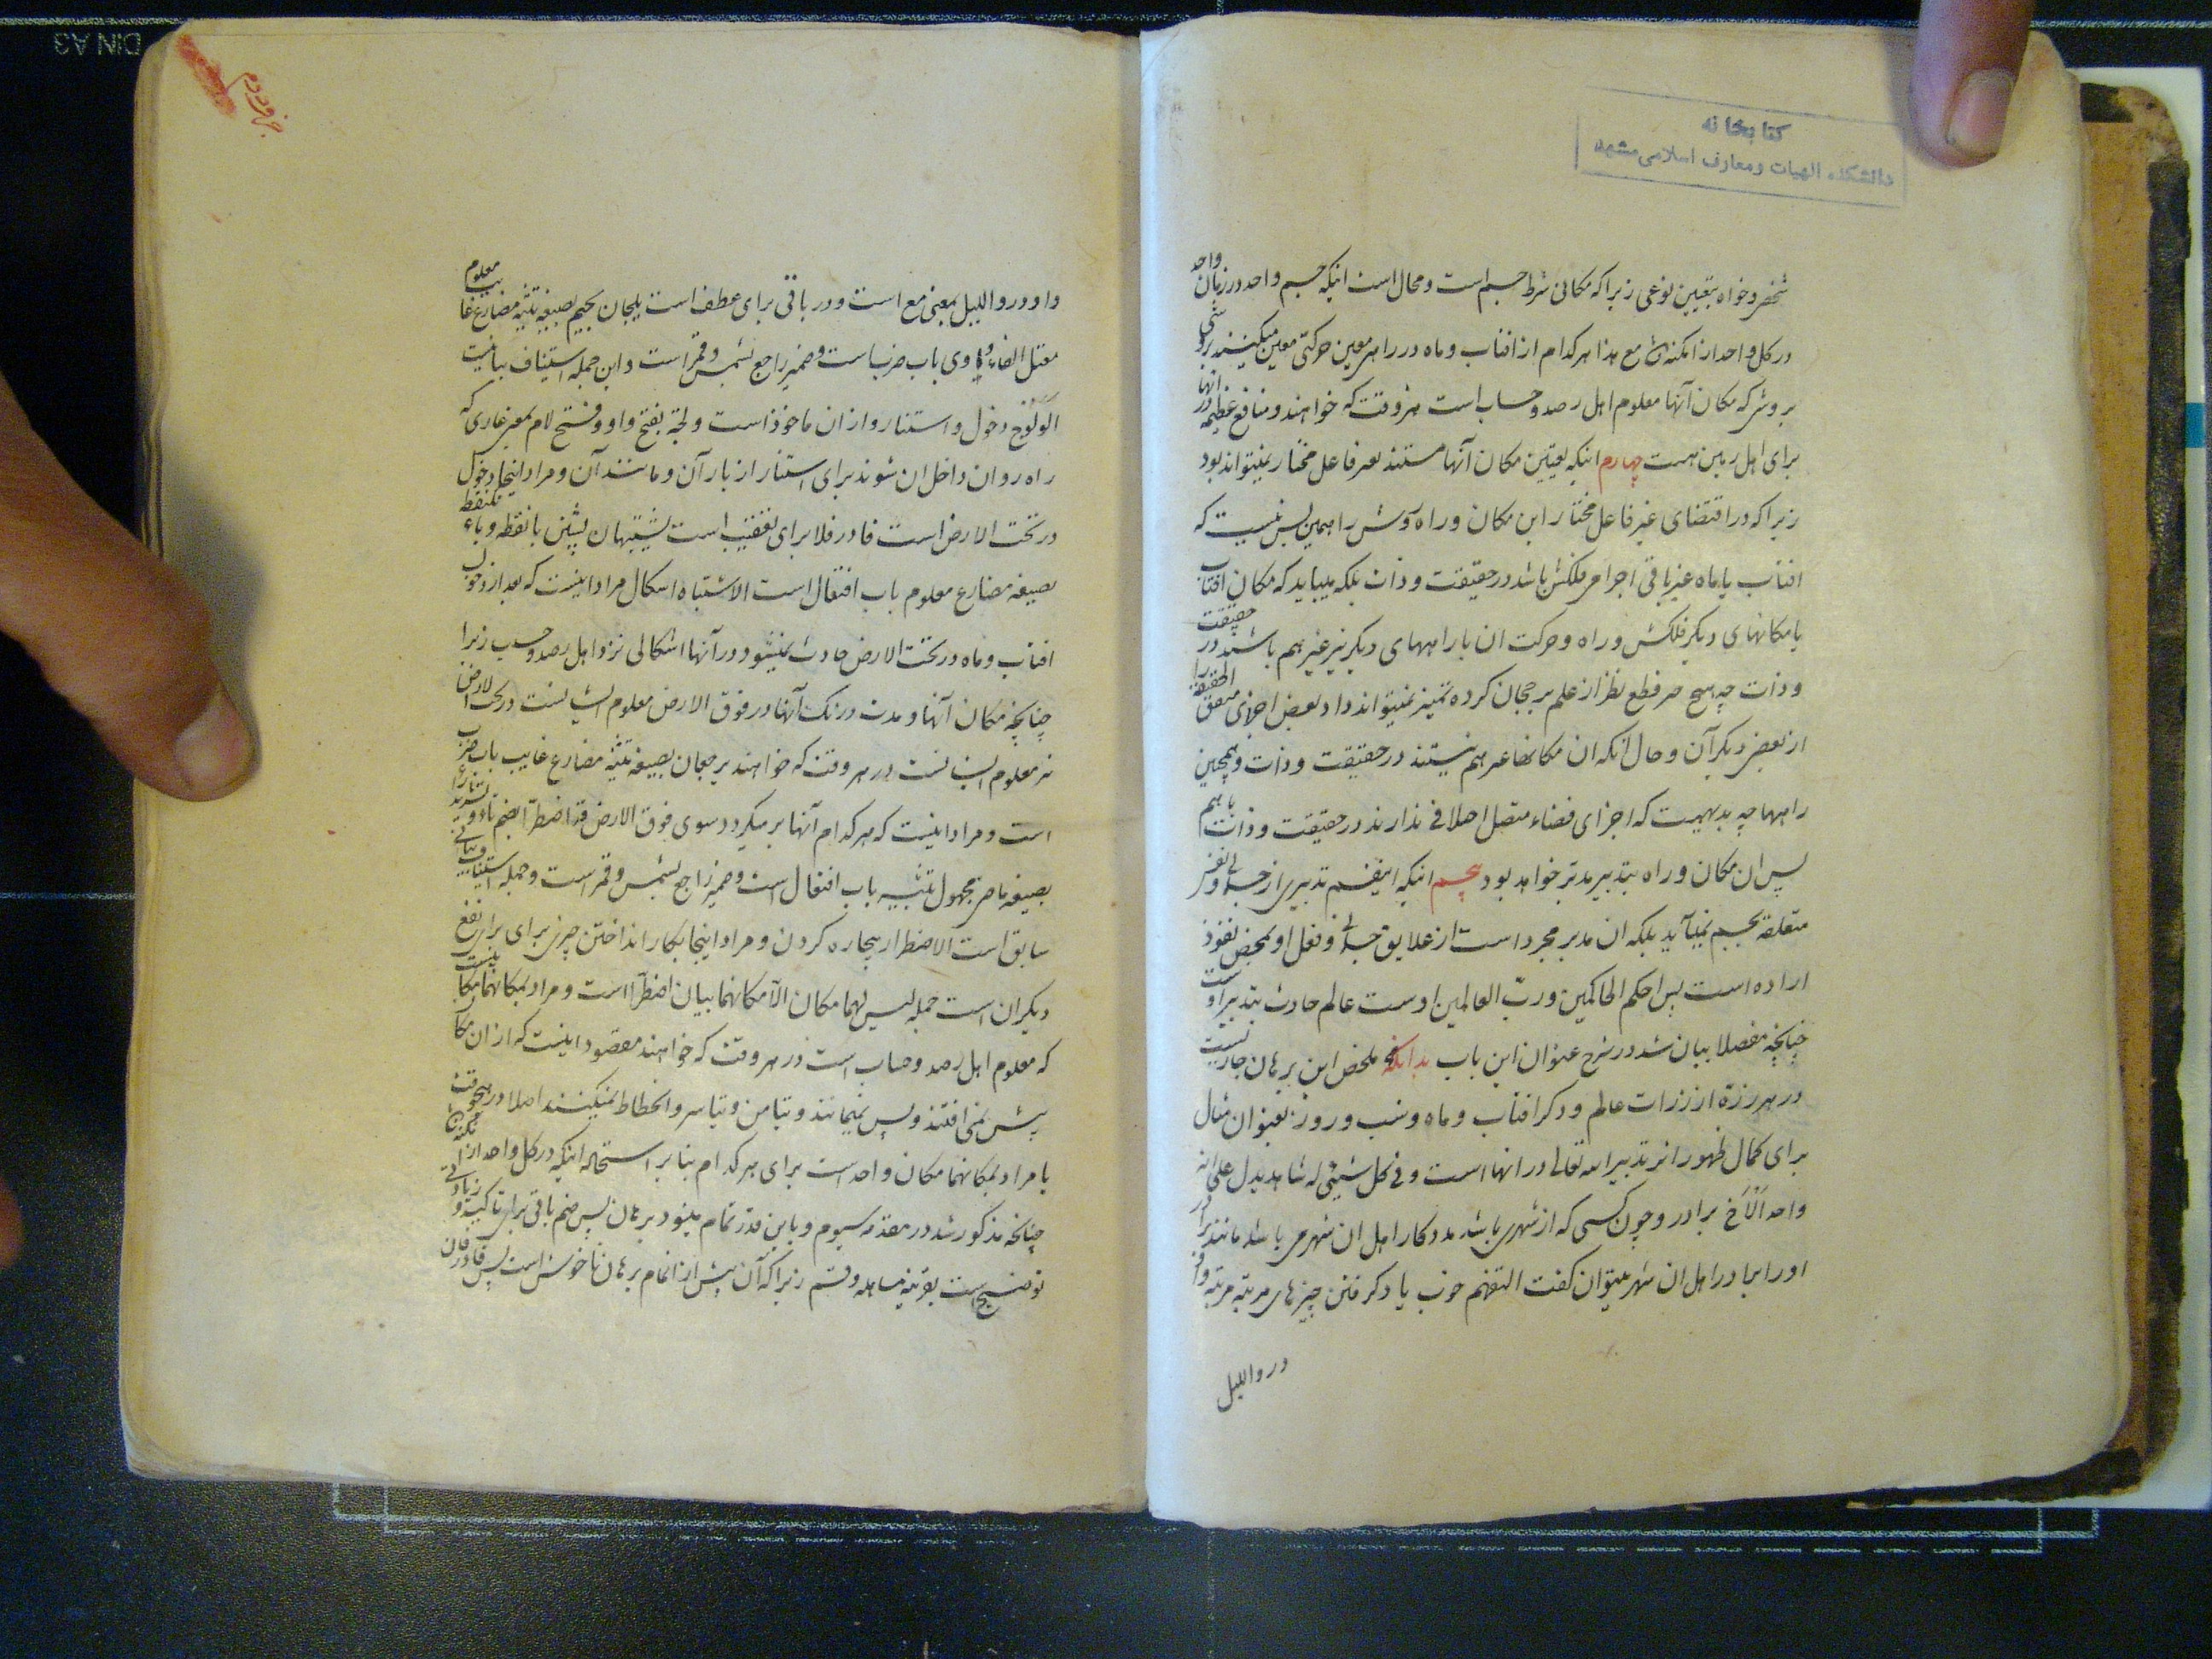 کتابخانه
دانشکده الهیات و معارف اسلامی مشهد
شخصی و خواه بتعیین نوعی زیرا که مکانی شرط جسم است و محال است اینکه جسم واحد در زمان واحد
در کل واحد از امکنه باشد مع هذا هر کدام از افتاب و ماه در راهی معین حرکتی معین میکنند
بروشی که مکان آنها معلوم اهل رصد و حساب است هر وقت که خواهند و منافع عظیمه در آنها
برای اهل زمین هست چهارم اینکه تعیین مکان آنها مستند بغیر فاعل مختار نمیتواند بود
زیرا که در اقتضای غیر فاعل مختار این مکان و راه و روش را همین بس نیست که
افتاب یا ماه غیر باقی اجرام فلکش باشد در حقیقت و ذات بلکه میباید که مکان افتاب
یا مکانهای دیگر فلکش و راه و حرکت ان با راههای دیگر نیز غیر هم باشند در حقیقت
و ذات چه هیچ کس قطع نظر از علم برجحان کرده تمیز نمیتواند داد بعض اجزای متفق الحقیقة را
از بعض دیگر آن و حال آنکه ان مکانها غیر هم نیستند در حقیقت و ذات و همچنین
راهها چه بدیهیست که اجزای فضاء متصل اختلافی ندارند در حقیقت و ذات با هم
پس ان مکان و راه بتدبیر مدبر خواهد بود پنجم اینکه اینقسم تدبیری از جسمی و نفس
متعلقه بجسم نمیآید بلکه ان مدبر مجرد است از علایق جسمانی و فعل او بمحض نفوذ
اراده است پس احکم الحاکمین و رب العالمین اوست عالم حادث بتدبیر اوست
چنانچه مفصلا بیان شد در شرح عنوان این باب بدانکه ملخص این برهان جاریست
در هر ذرّه از ذرات عالم و ذکر افتاب و ماه و شب و روز بعنوان مثال
برای کمال ظهور اثر تدبیر الله تعالی در انها است و فی کل شیئ له شاهد یدل علی انه
واحد اَلْاَخ برادر و چون کسی که از شهری باشد مددکار اهل ان شهر می باشد مانند برادر
او را برادر اهل ان شهر میتوان گفت التفهم خوب یاد گرفتن چیزهای مرتبه مرتبه
در واللیل
واو در واللیل بمعنی مع است و در باقی برای عطف است یلجان بجیم بصیغه تثنیه مضارع غایب معلوم
معتل الفاء واوی باب ضرب است و ضمیر راجع بشمس و قمر است و این جمله استیناف بیانیست
الولوج دخول و استتار و از ان ماخوذ است ولجة بفتح واو و فتح لام بمعنی غاری که
راه روان داخل ان شوند برای استتار از باران و مانند آن و مراد اینجا دخول
در تحت الارض است فا در فلا برای تعقیب است یشتبهان بشین با نقطه و باء یکنقطه
بصیغه مضارع معلوم باب افتعال است الاشتباه اشکال مراد اینست که بعد از دخول
افتاب و ماه در تحت الارض حادث نمیشود در آنها اشکالی نزد اهل رصد و حساب زیرا
چنانچه مکان آنها و مدت درنک آنها در فوق الارض معلوم ایشانست در تحت الارض
نیز معلوم ایشانست در هر وقت که خواهند یرجعان بصیغه تثنیه مضارع غایب باب ضرب
است و مراد اینست که هر کدام آنها بر میگردد سوی فوق الارض قد اضطرّا بضم طاء و تشدید راء
بصیغه ماضی مجهول تثنیه باب افتعال است و ضمیر راجع بشمس و قمر است و جمله استیناف بیانی
سابق است الاضطرار بیچاره کردن و مراد اینجا بکار انداختن چیزی برای نفع
دیگران است جمله لیس لهما مکان الا مکانهما بیان اضطرا است و مراد بمکانهما مکانیست
که معلوم اهل رصد و حساب است در هر وقت که خواهند مقصود اینست که از ان مکان
پیش نمی افتند و پس نمیمانند و تیامن و تیاسر و انحطاط نمیکنند اصلا در هیچوقت
یا مراد بمکانهما مکان واحد است برای هر کدام بنا بر استحاله اینکه در کل واحد از امکنه باشد
چنانچه مذکور شد در مقدمه سیوم و باین قدر تمام میشود برهان پس ضم باقی برای تاکید و زیادتی
توضیح است بقرینه فا در قسم زیرا که آن پیش از اتمام برهان ناخوش است پس فا در فان